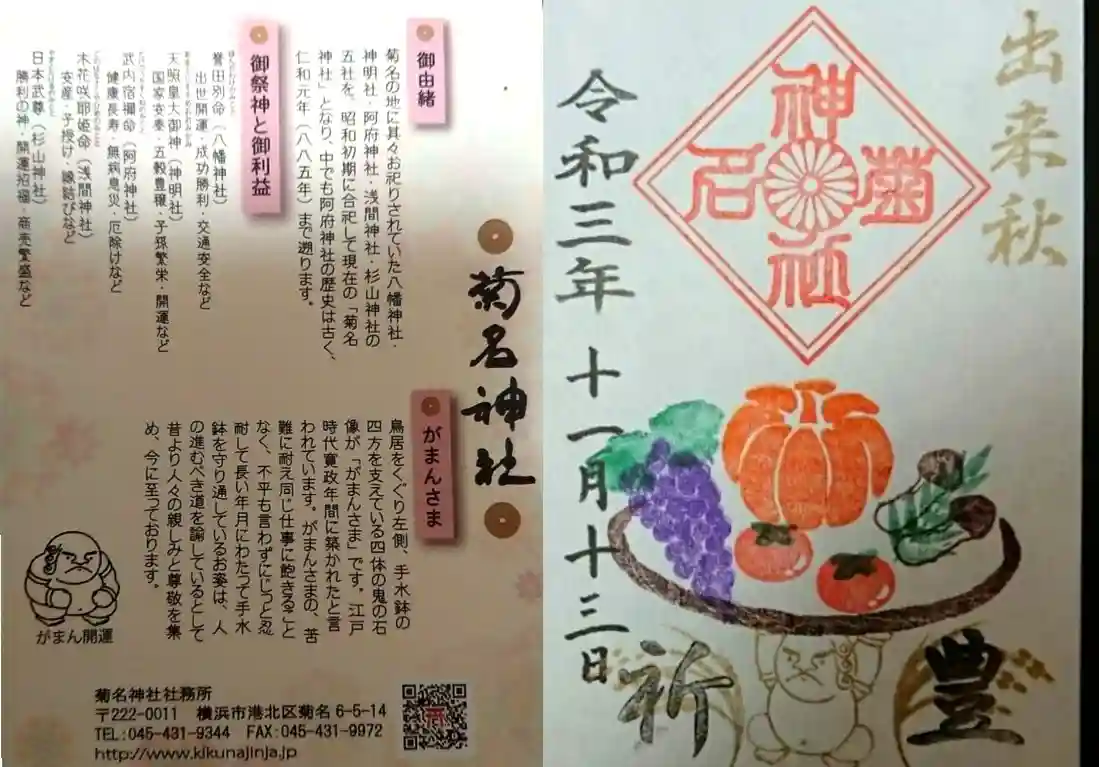 菊名神社
御由緒
菊名の地に其々お祀りされていた八幡神社・
神明社・阿府神社・浅間神社・杉山神社の
五社を、昭和初期に合祀して現在の「菊名
神社」となり、中でも阿府神社の歴史は古く、
仁和元年(八八五年)まで遡ります。
御祭神と御利益
誉田別命(八幡神社)
出世開運・成功勝利・交通安全など
天照皇大御神(神明社)
国家安泰・五穀豊穣・子孫繁栄・開運など
武内宿禰命(阿府神社)
健康長寿・無病息災・厄除けなど
木花咲耶姫命(浅間神社)
安産・子授け・縁結びなど
日本武尊(杉山神社)
勝利の神・開運招福・商売繁盛など
がまんさま
鳥居をくぐり左側、手水鉢の
四方を支えている四体の鬼の石
像が「がまんさま」です。江戸
時代寛政年間に築かれたと言
われています。がまんさまの、苦
難に耐え同じ仕事に飽きること
なく、不平も言わずにじっと忍
耐して長い年月にわたって手水
鉢を守り通しているお姿は、人
の進むべき道を諭しているとして
昔より人々の親しみと尊敬を集
め、今に至っております。
がまん開運
菊名神社社務所
〒222-0011 横浜市港北区菊名6-5-14
TEL:045-431-9344 FAX:045-431-9972
http://www.kikunajinja.jp
出来秋
菊名神社
令和三年 十一月十三日
豊
祈